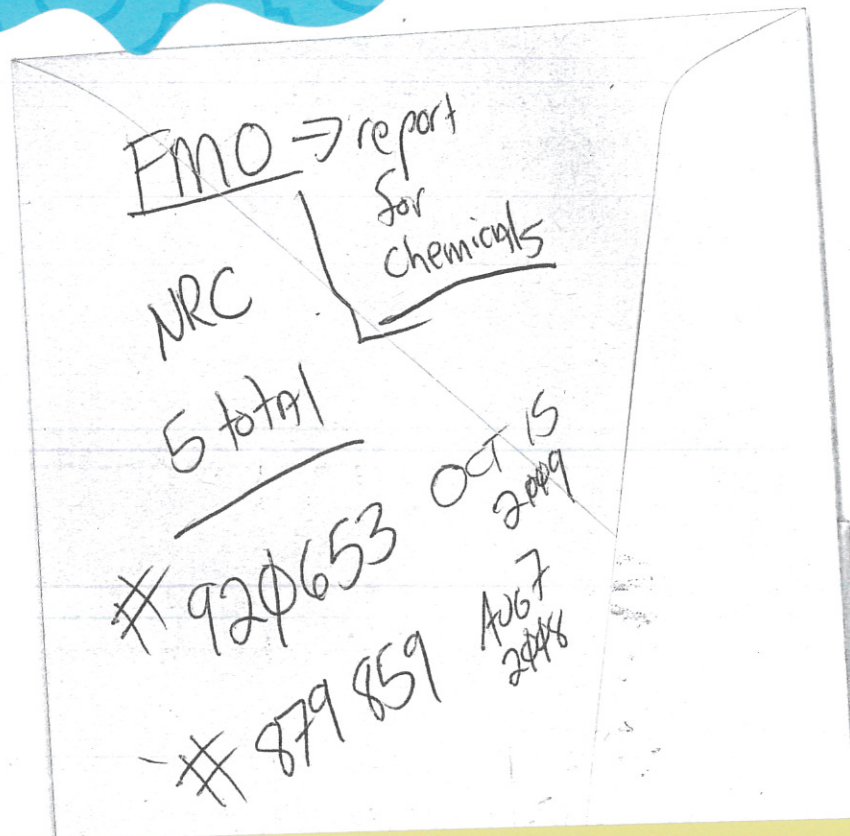 FMO → report
for
chemicals
NRC
5 total
#920653 OCT 15
2009
#879859 AUG 7
2008